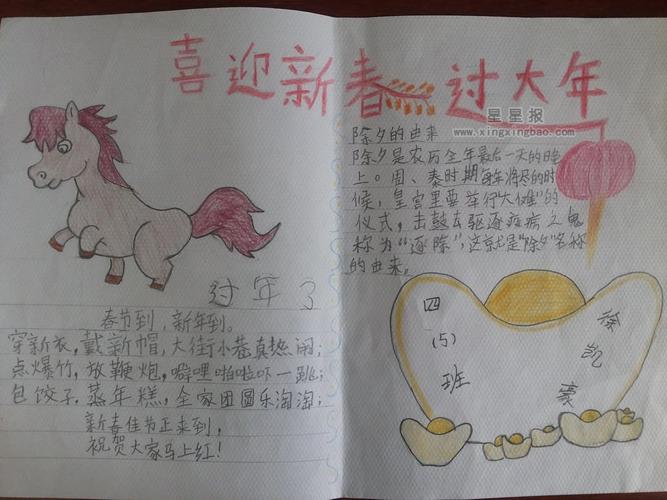 喜迎新春 过大年
星星报
www.xingxingbao.com
过年了
春节到,新年到。
穿新衣,戴新帽,大街小巷真热闹;
点爆竹,放鞭炮,噼哩啪啦吓一跳;
包饺子,蒸年糕,全家团圆乐淘淘;
新喜佳节正来到,
祝贺大家马上红!
除夕的由来
除夕是农历全年最后一天的晚
上。周、秦时期每年将尽的时
候,皇宫里要举行“大傩”的
仪式,击鼓去驱逐疫病之鬼
称为“逐除”,这就是“除夕”名称
的由来。
四(5)班
徐凯豪